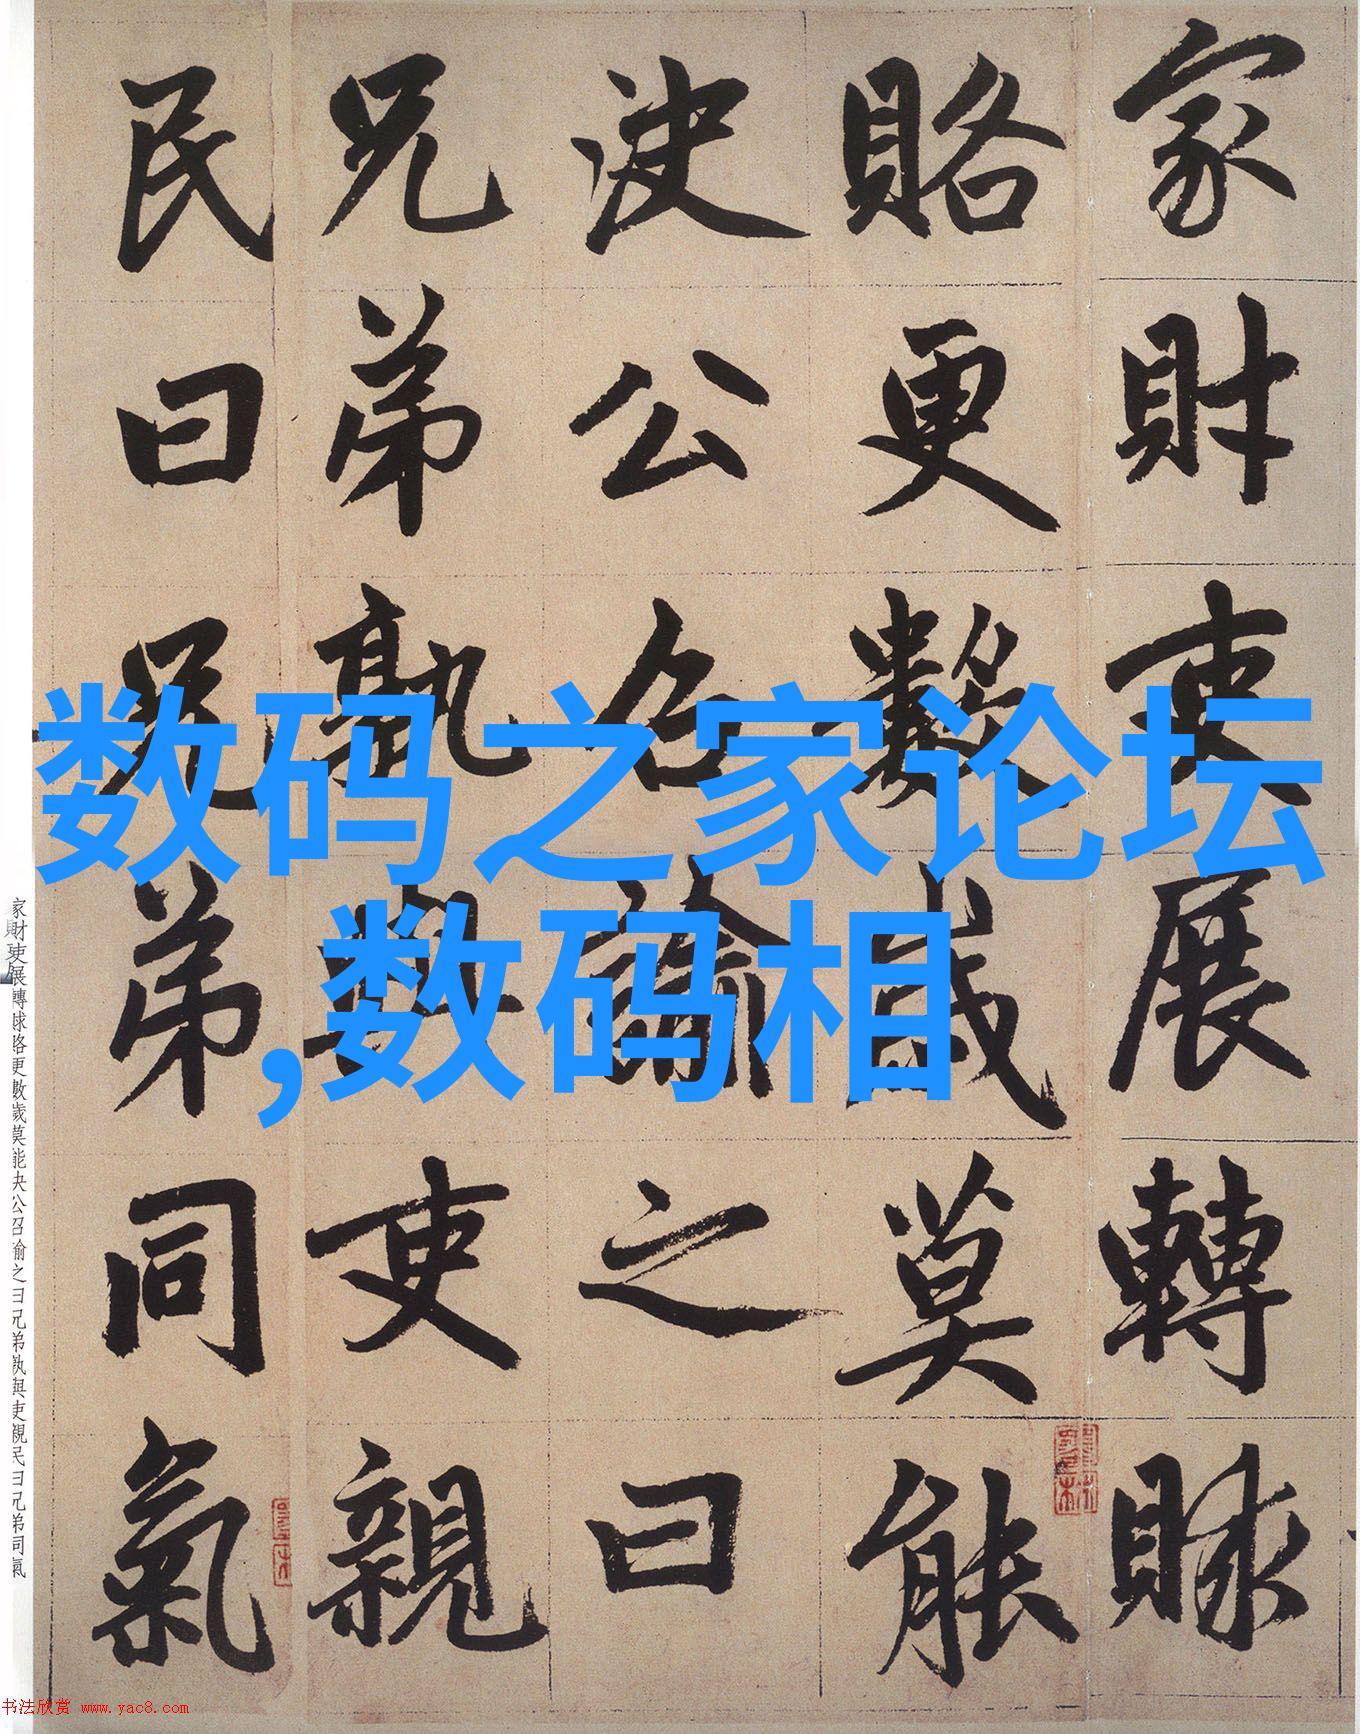 数码之家论坛
,数码相
家財吏展轉賕
賂更數歲莫能
決公召諭之曰
兄弟孰與吏親
民曰兄弟同氣
家財吏展轉賕賂更數歲莫能決公召諭之曰兄弟孰與吏親民曰兄弟同氣
书法欣赏 www.yac8.com